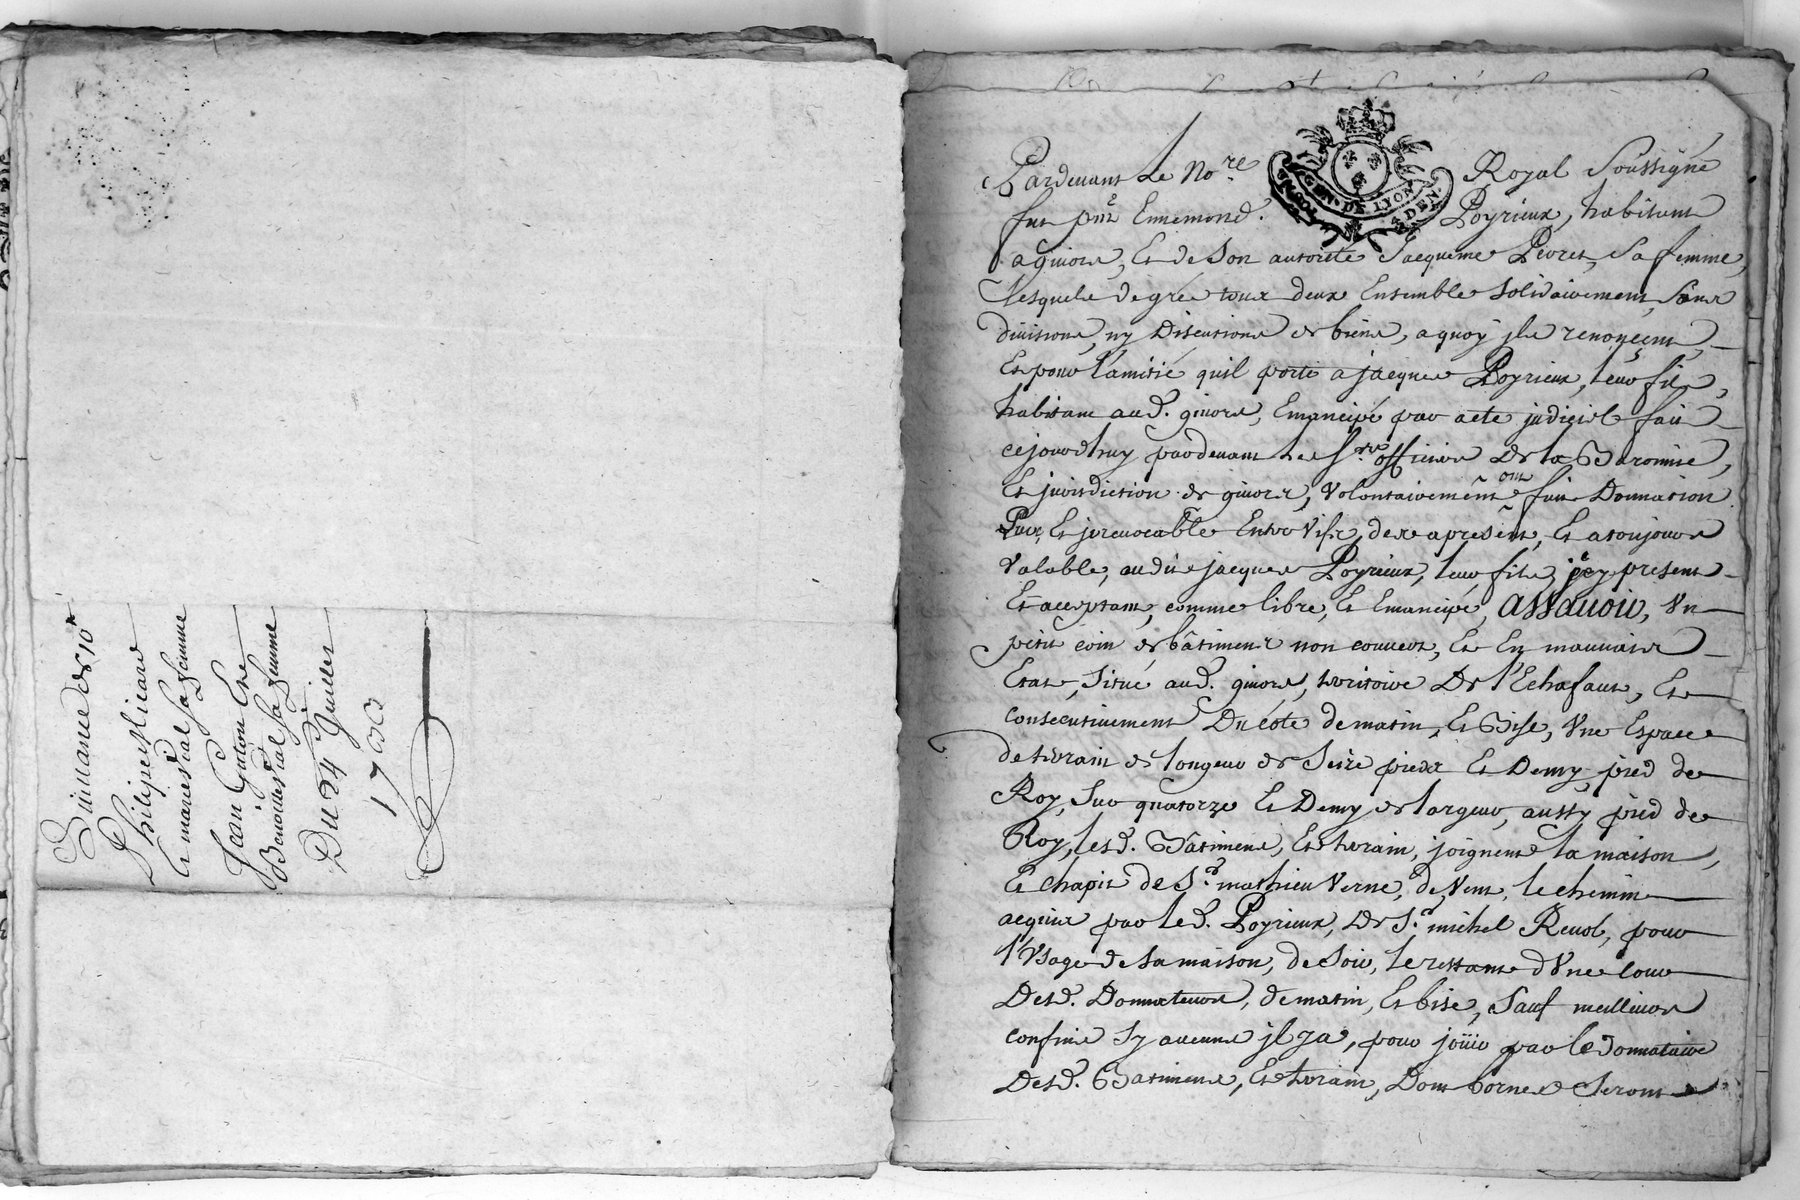 Quittance de 10#
Philipe
et marie Vial sa femme
Jean Guiton et
Benoitte Vial sa femme
Du 24 Juillet
1790
GEN. DE LYON
Pardevant Le No.re Royal Soussigné
fut p.nt Ennemond. Poyrieux, habitant
a givors, Et de Son autorité Jacqueme Peyret, Sa femme,
lesquels de gré tous deux Ensemble Solidairement, Sans
divisions, ny Discutions de biens, a quoy jls renonçent,
Et pour l'amitié quil porte a jacques Poyrieux, leur fils,
habitant aud. givors, Emancipé par acte judiciel fait
cejourdhuy pardevant les S.rs officiers De la Baronnie,
Et jurisdiction de givors, Volontairement ont fait Donnation
Pure, Et jrrevocable Entre Vifs, des apresent, Et atoujours
Valable, audit jacques Poyrieux, leur fils jcy present
Et acceptant, comme libre, Et Emancipé, assavoir, Un
petit coin de bâtiment non couvert, Et En mauvais
Etat, Situé aud. givors, territoire De l'Echafaut, Et
Consecutivement Du côté de matin, Et Bise, Une Espace
de terrain de longeur de Seize pieds Et Demy pied de
Roy, Sur quatorze Et Demy de largeur, aussy pied de
Roy, lesd. Batiment, Et terrain, joignent la maison,
Et chapit de S.r mathieu Verne, de Vent, le chemin
acquis par led. Poyrieux, De S.r michel Revol, pour
l'Usage de sa maison, de Soir, le restant d'Une Cour
Desd. Donnateurs, de matin, Et bise, Sauf meilleurs
confins Sy aucuns jl ya, pour joüir par le Donnataire
Desd. Batiment, Et terrain, Dont bornes Seront